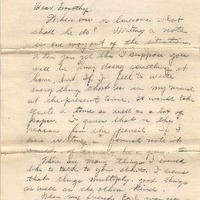 Dear Dorothy,
When one is lonesome what
shall he do? Writing a note
is one way out of the situation.
When you get this I suppose you
will be busy doing something at
home, And if I fell to write
every thing that is in my mind
at the present time, it would take
quite a time as well as a lot of
paper. I guess that is the
reason for the pencil. If I
was writing a formal note it
would
There are many things I would
like to talk to you about. I know
that things multiply, good things
as well as the other kind.
When my friend, Earl